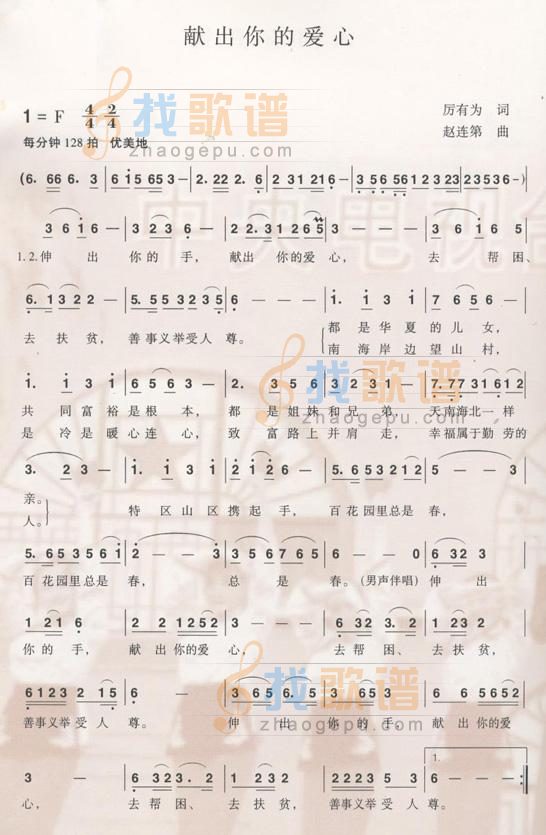 献出你的爱心
1=F 4/4 2/4
厉有为 词
每分钟128拍 优美地
赵连第 曲
找歌谱
zhaogepu.com
(6. 66 6. 3 | 6 1 5 65 3 - | 2. 22 2. 6 | 2 31 21 6 - | 3 56 56 | 56 123 23 | 2 3 5 3 6 - )
3 6 1 6 - | 3 2 3 6 - | 2 2. 31 2 6 5 | 3 - - - | 3 6 1 6 5
1.2.伸 出 你 的 手, 献出 你的爱 心, 去 帮困、
6. 1 3 2 2 - | 5. 55 3 2 3 5 | 6 - - - | 1. 1 3 1 | 7 6 5 6 -
去 扶 贫, 善事义举受人 尊。 都 是 华 夏 的 儿 女,
南 海 岸 边 望 山 村,
1. 1 3 1 | 6 5 6 3 - | 2. 3 5 6 | 3 2 3 1 - | 7. 77 3 1 6 1 2
找歌谱
zhaogepu.com
共 同 富 裕 是 根 本, 都 是 姐 妹 和 兄 弟, 天南海北一样
是 冷 是 暖 心 连 心, 致 富 路 上 并 肩 走, 幸福属于勤劳的
3. 2 3 - | 1. 1 3 1 | 2 1 2 6 - | 5. 6 5 3 2 1 2 | 5 - - 3
亲。 特 区 山 区 携 起 手, 百 花 园里总是 春,
人。
5. 6 5 3 5 6 1 | 2 - - 3 | 3 5 6 7 6 5 | 6 - - 0 | 6 3 2 3 2
百 花园里总是 春, 总 是 春。(男声伴唱) 伸 出
1 2 1 6 | 2 2 1 2 5 2 | 3 - - - | 6 3 2 3. | 2 1 2 3 2
你 的 手, 献 出 你的爱 心, 去帮困、 去扶贫,
找歌谱
zhaogepu.com
6 1 2 3 2 1 5 | 6 - | 3 6 5 6. 5 | 3 6 5 3 | 6 5 5 6 5 2
善事义举 受 人 尊。 伸 出 你 的 手, 献 出 你的爱
1.
3 - | 6 3 2 3. 2 | 1 2 3 2 | 2 2 2 3 5 3 | 6 - :
心, 去帮困、 去扶贫, 善事义举受人 尊。